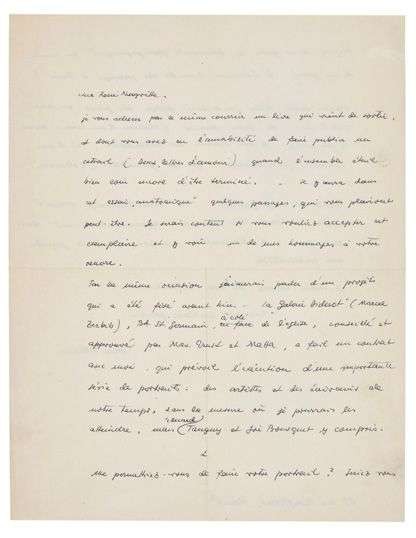 je vous adresse par ce même courrier un livre qui vient de sortir,
et dont vous avez eu l'amabilité de faire publier un
extrait (deux lettres d'amour) quand l'ensemble était
bien loin encore d'être terminé. - Il y aura dans
cet essai anatomique quelques passages, qui vous plairont
peut-être. Je serais content si vous vouliez accepter cet
exemplaire et y voir un de mes hommages à votre
oeuvre.
Par la même occasion j'aimerais parler d'un projet
qui a été fixé avant hier. - La Galerie Diderot (Marcel
Zerbib), Bd St Germain, à côté en face de l'église, conseillé et
approuvé par Max Ernst et Matta, a fait un contrat
avec moi qui prévoit l'exécution d'une importante
série de portraits: des artistes et des écrivains de
notre temps, dans la mesure où je pourrais les
atteindre, mais ensuite (Tanguy et Joë Bousquet y compris.
Me permettriez-vous de faire votre portrait? Seriez vous